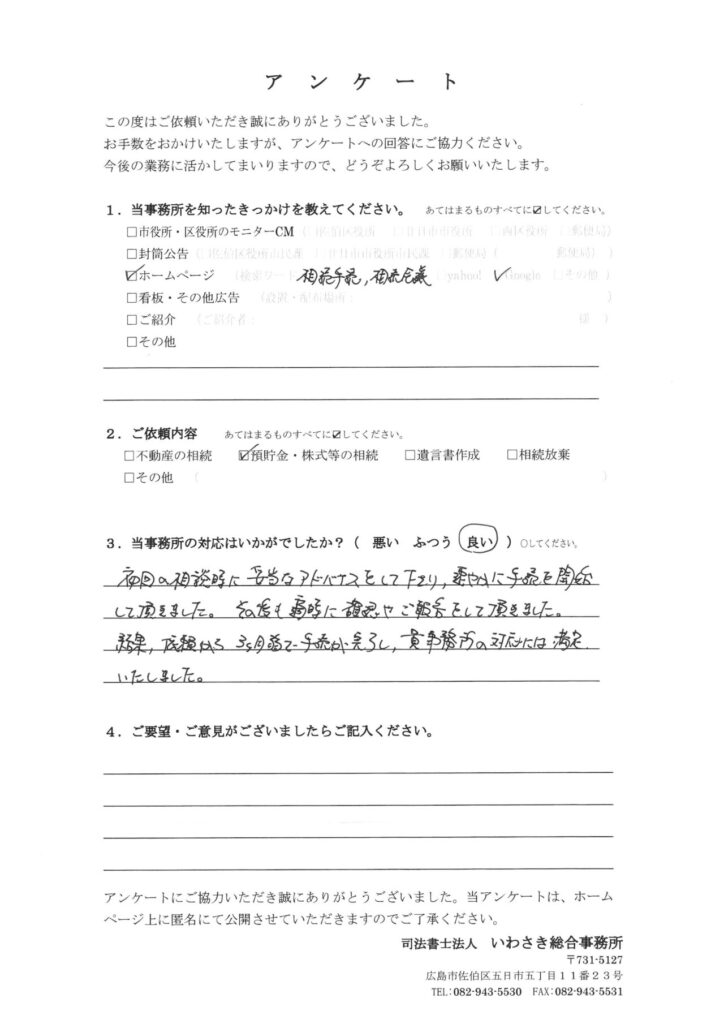 アンケート
この度はご依頼いただき誠にありがとうございました。
お手数をおかけいたしますが、アンケートへの回答にご協力ください。
今後の業務に活かしてまいりますので、どうぞよろしくお願いいたします。
１．当事務所を知ったきっかけを教えてください。 あてはまるものすべてに☑してください。
□市役所・区役所のモニターCM (□佐伯区役所 □廿日市市役所 □西区役所 □郵便局)
□封筒公告 (□佐伯区役所市民課 □廿日市市役所市民課 □郵便局( 郵便局))
☑ホームページ (検索ワード 相続手続，相続会議 □yahoo! ☑Google □その他)
□看板・その他広告 (設置・配布場所： )
□ご紹介 (ご紹介者： )
□その他
２．ご依頼内容 あてはまるものすべてに☑してください。
□不動産の相続 ☑預貯金・株式等の相続 □遺言書作成 □相続放棄
□その他 ( )
３．当事務所の対応はいかがでしたか？( 悪い ふつう 良い ) ○してください。
初回の相談時に妥当なアドバイスをして下さり，速やかに手続を開始
して頂きました。その後も適時に確認やご報告をして頂きました。
結果，依頼から3ヶ月弱で手続が完了し，貴事務所の対応には満足
いたしました。
４．ご要望・ご意見がございましたらご記入ください。
アンケートにご協力いただき誠にありがとうございました。当アンケートは、ホーム
ページ上に匿名にて公開させていただきますのでご了承ください。
司法書士法人 いわさき総合事務所
〒731-5127
広島市佐伯区五日市五丁目１１番２３号
TEL:082-943-5530 FAX:082-943-5531